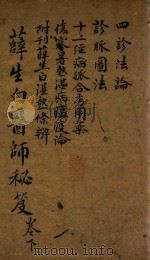 四診法論
診脉圖法
十二經病脉合宜用藥
傷寒暑熱溫病瘟疫論
附刊薛生白濕熱條辨
薛生白醫師秘笈 卷下